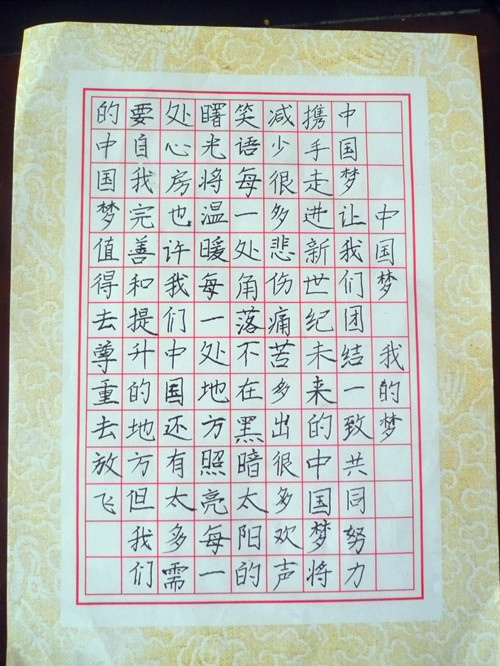 中国梦 我的梦
中国梦让我们团结一致共同努力
携手走进新世纪未来的中国梦将
减少很多悲伤痛苦多出很多欢声
笑语每一处角落不在黑暗太阳的
曙光将温暖每一处地方照亮每一
处心房也许我们中国还有太多需
要自我完善和提升的地方但我们
的中国梦值得去尊重去放飞